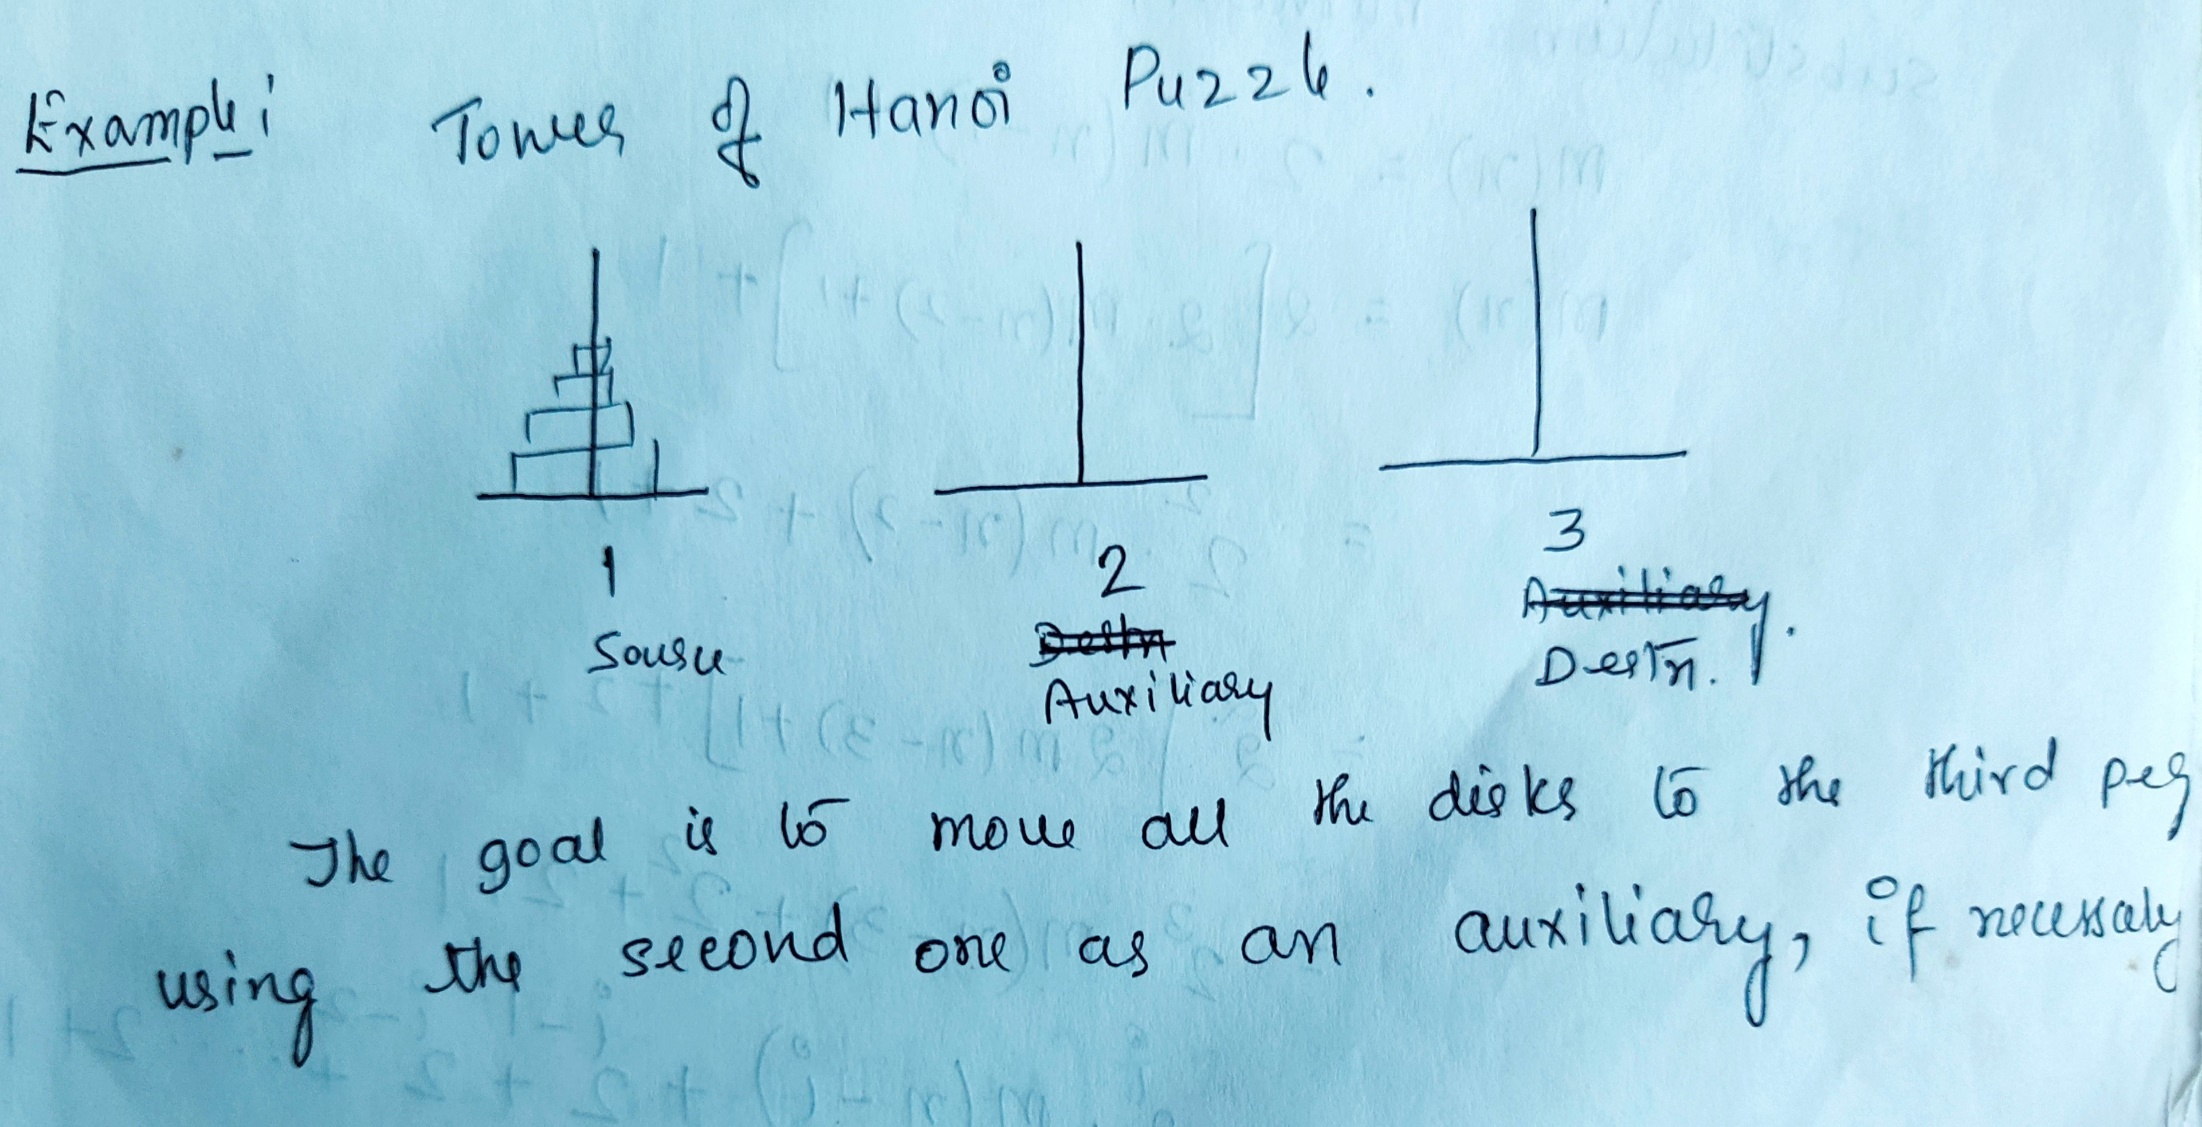 Example: Tower of Hanoi Puzzle.
1 2 3
Source Destn Auxiliary.
Auxiliary Destn.
The goal is to move all the disks to the third peg
using the second one as an auxiliary, if necessary